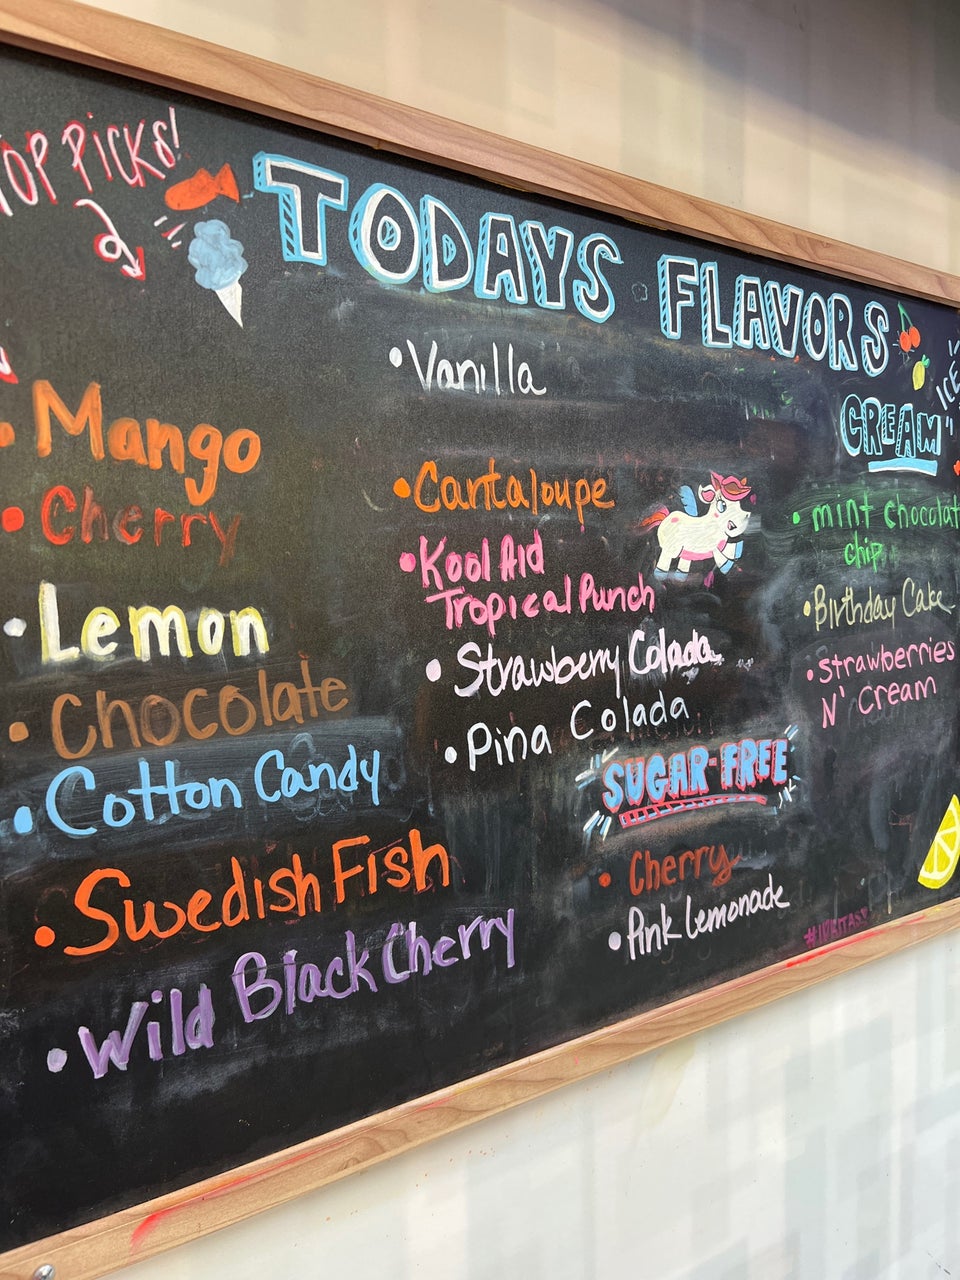 TOP PICKS!
TODAYS FLAVORS
• Mango
• Cherry
• Lemon
• Chocolate
• Cotton Candy
• Swedish Fish
• Wild Black Cherry
• Vanilla
• Cantaloupe
• Kool Aid
Tropical Punch
• Strawberry Colada
• Pina Colada
SUGAR-FREE
• Cherry
• Pink Lemonade
ICE
CREAM
• mint chocolat
chip
• Birthday Cake
• Strawberries
N' Cream